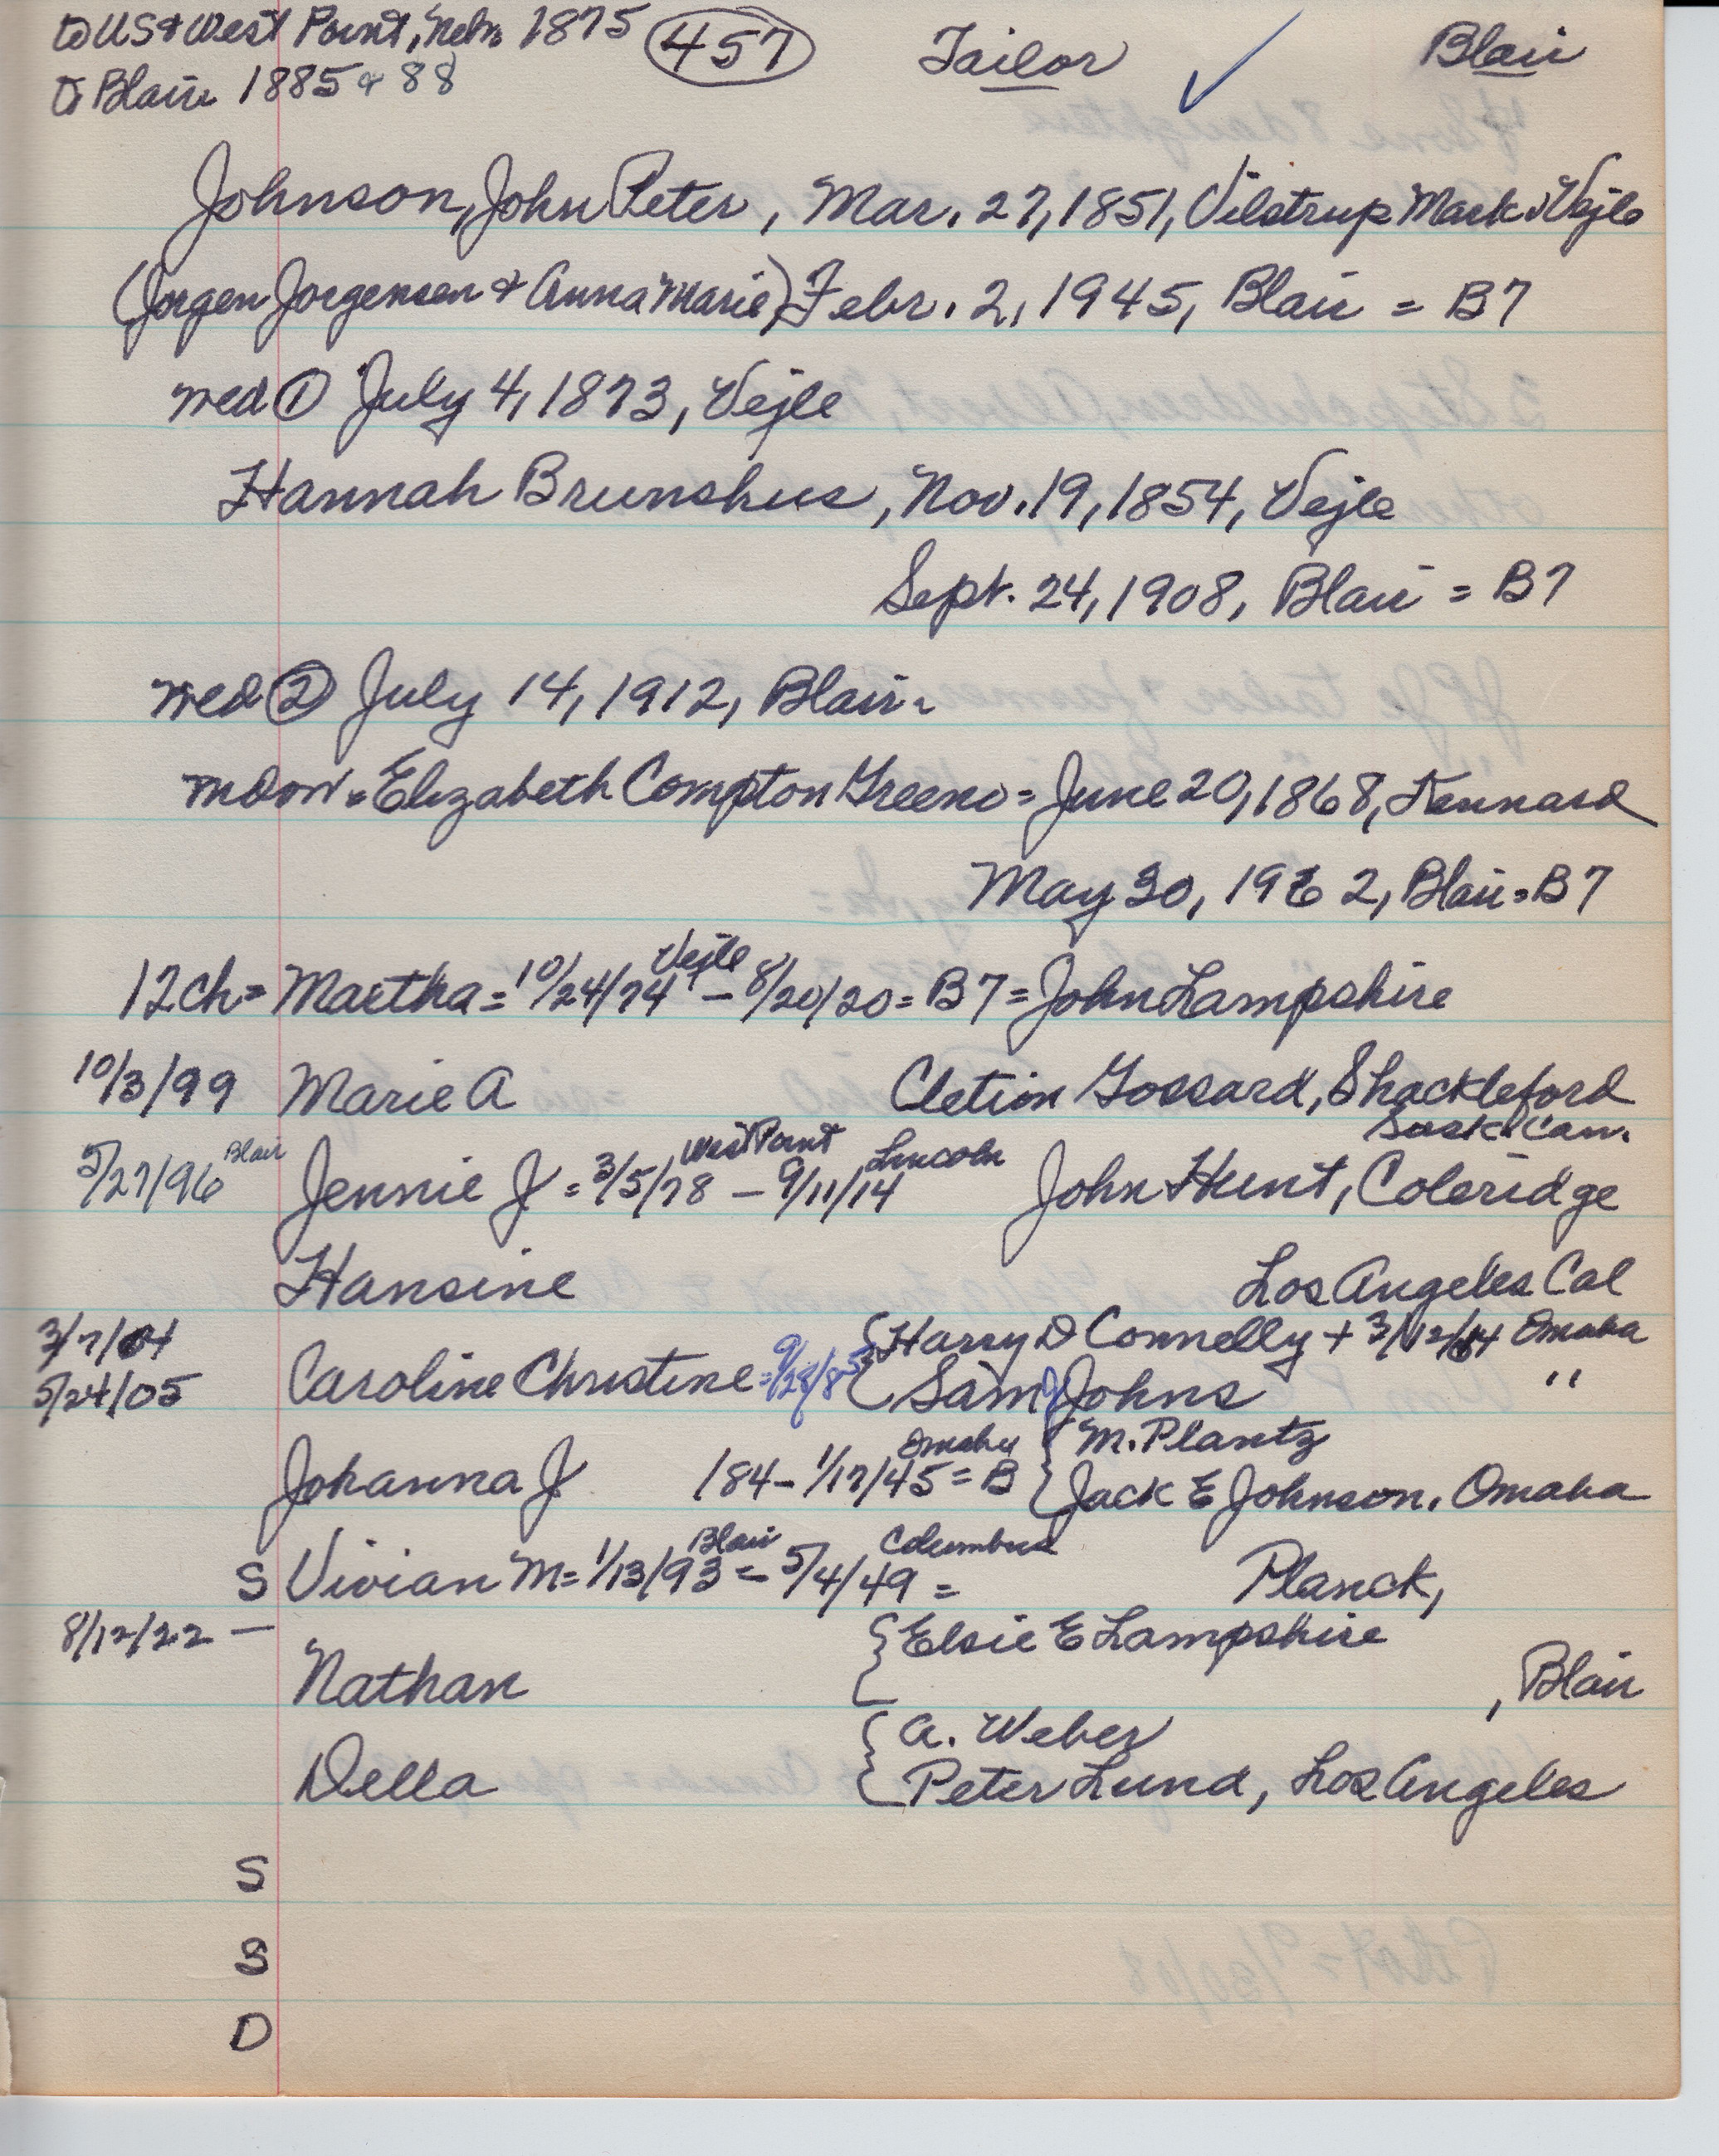 to US & West Point, Nebr 1875 457 Tailor ✓ Blair
to Blair 1885 & 88
Johnson, John Peter, Mar. 27, 1851, Vilstrup Mark, Vejle
(Jorgen Jorgensen & Anna Marie) Febr. 2, 1945, Blair = B7
med ① July 4, 1873, Vejle
Hannah Brunshus, Nov. 19, 1854, Vejle
Sept. 24, 1908, Blair = B7
med ② July 14, 1912, Blair
Elizabeth Compton Greeno = June 20, 1868, Kennard
May 30, 1962, Blair = B7
12 ch = Martha = 10/24/74 Vejle - 8/20/20 = B7 = John Lampshire
10/3/99 Marie A Cletion Gossard, Shackleford
Sask. Can.
5/27/96 Blair Jennie J = 3/5/78 West Point - 9/11/14 Lincoln John Hunt, Coleridge
Hansine Los Angeles Cal
3/7/04 { Harry D Connelly + 3/12/04 Omaha
5/24/05 Caroline Christine = 9/28/85 { Sam Johns "
{ M. Plantz
Johanna J 184 - 1/17/45 Omaha = B { Jack E Johnson, Omaha
S Vivian M = 1/13/93 Blair - 5/4/49 Columbus = Planck,
8/12/22 - { Elsie E Lampshire
Nathan , Blair
{ A. Weber
Della { Peter Lund, Los Angeles
S
S
D